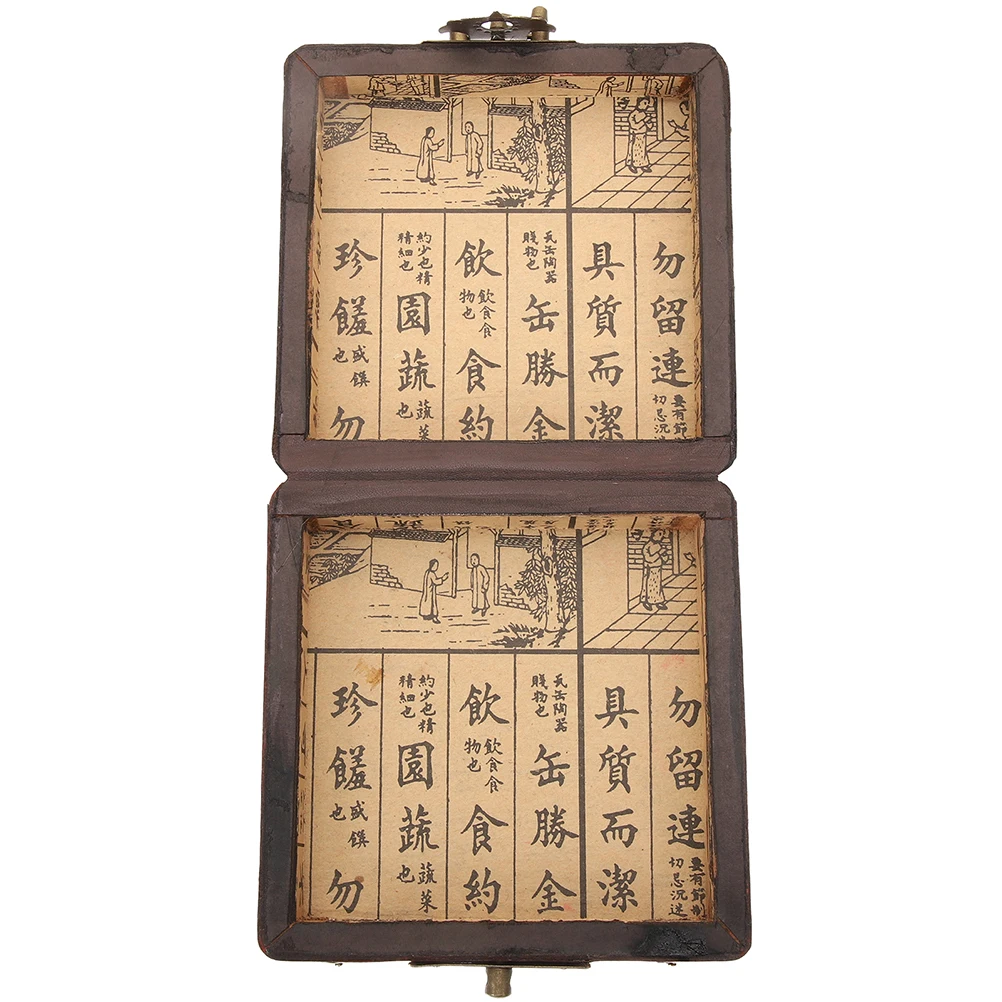 勿留連要有節切忌沉
具質而潔
瓦缶陶器賤物也缶勝金
飲飲食食物也食約
約少也精精細也園蔬蔬菜也
珍饈盛饌也勿
勿留連要有節制切忌沉迷
具質而潔
瓦缶陶器賤物也缶勝金
飲飲食食物也食約
約少也精精細也園蔬蔬菜也
珍饈盛饌也勿